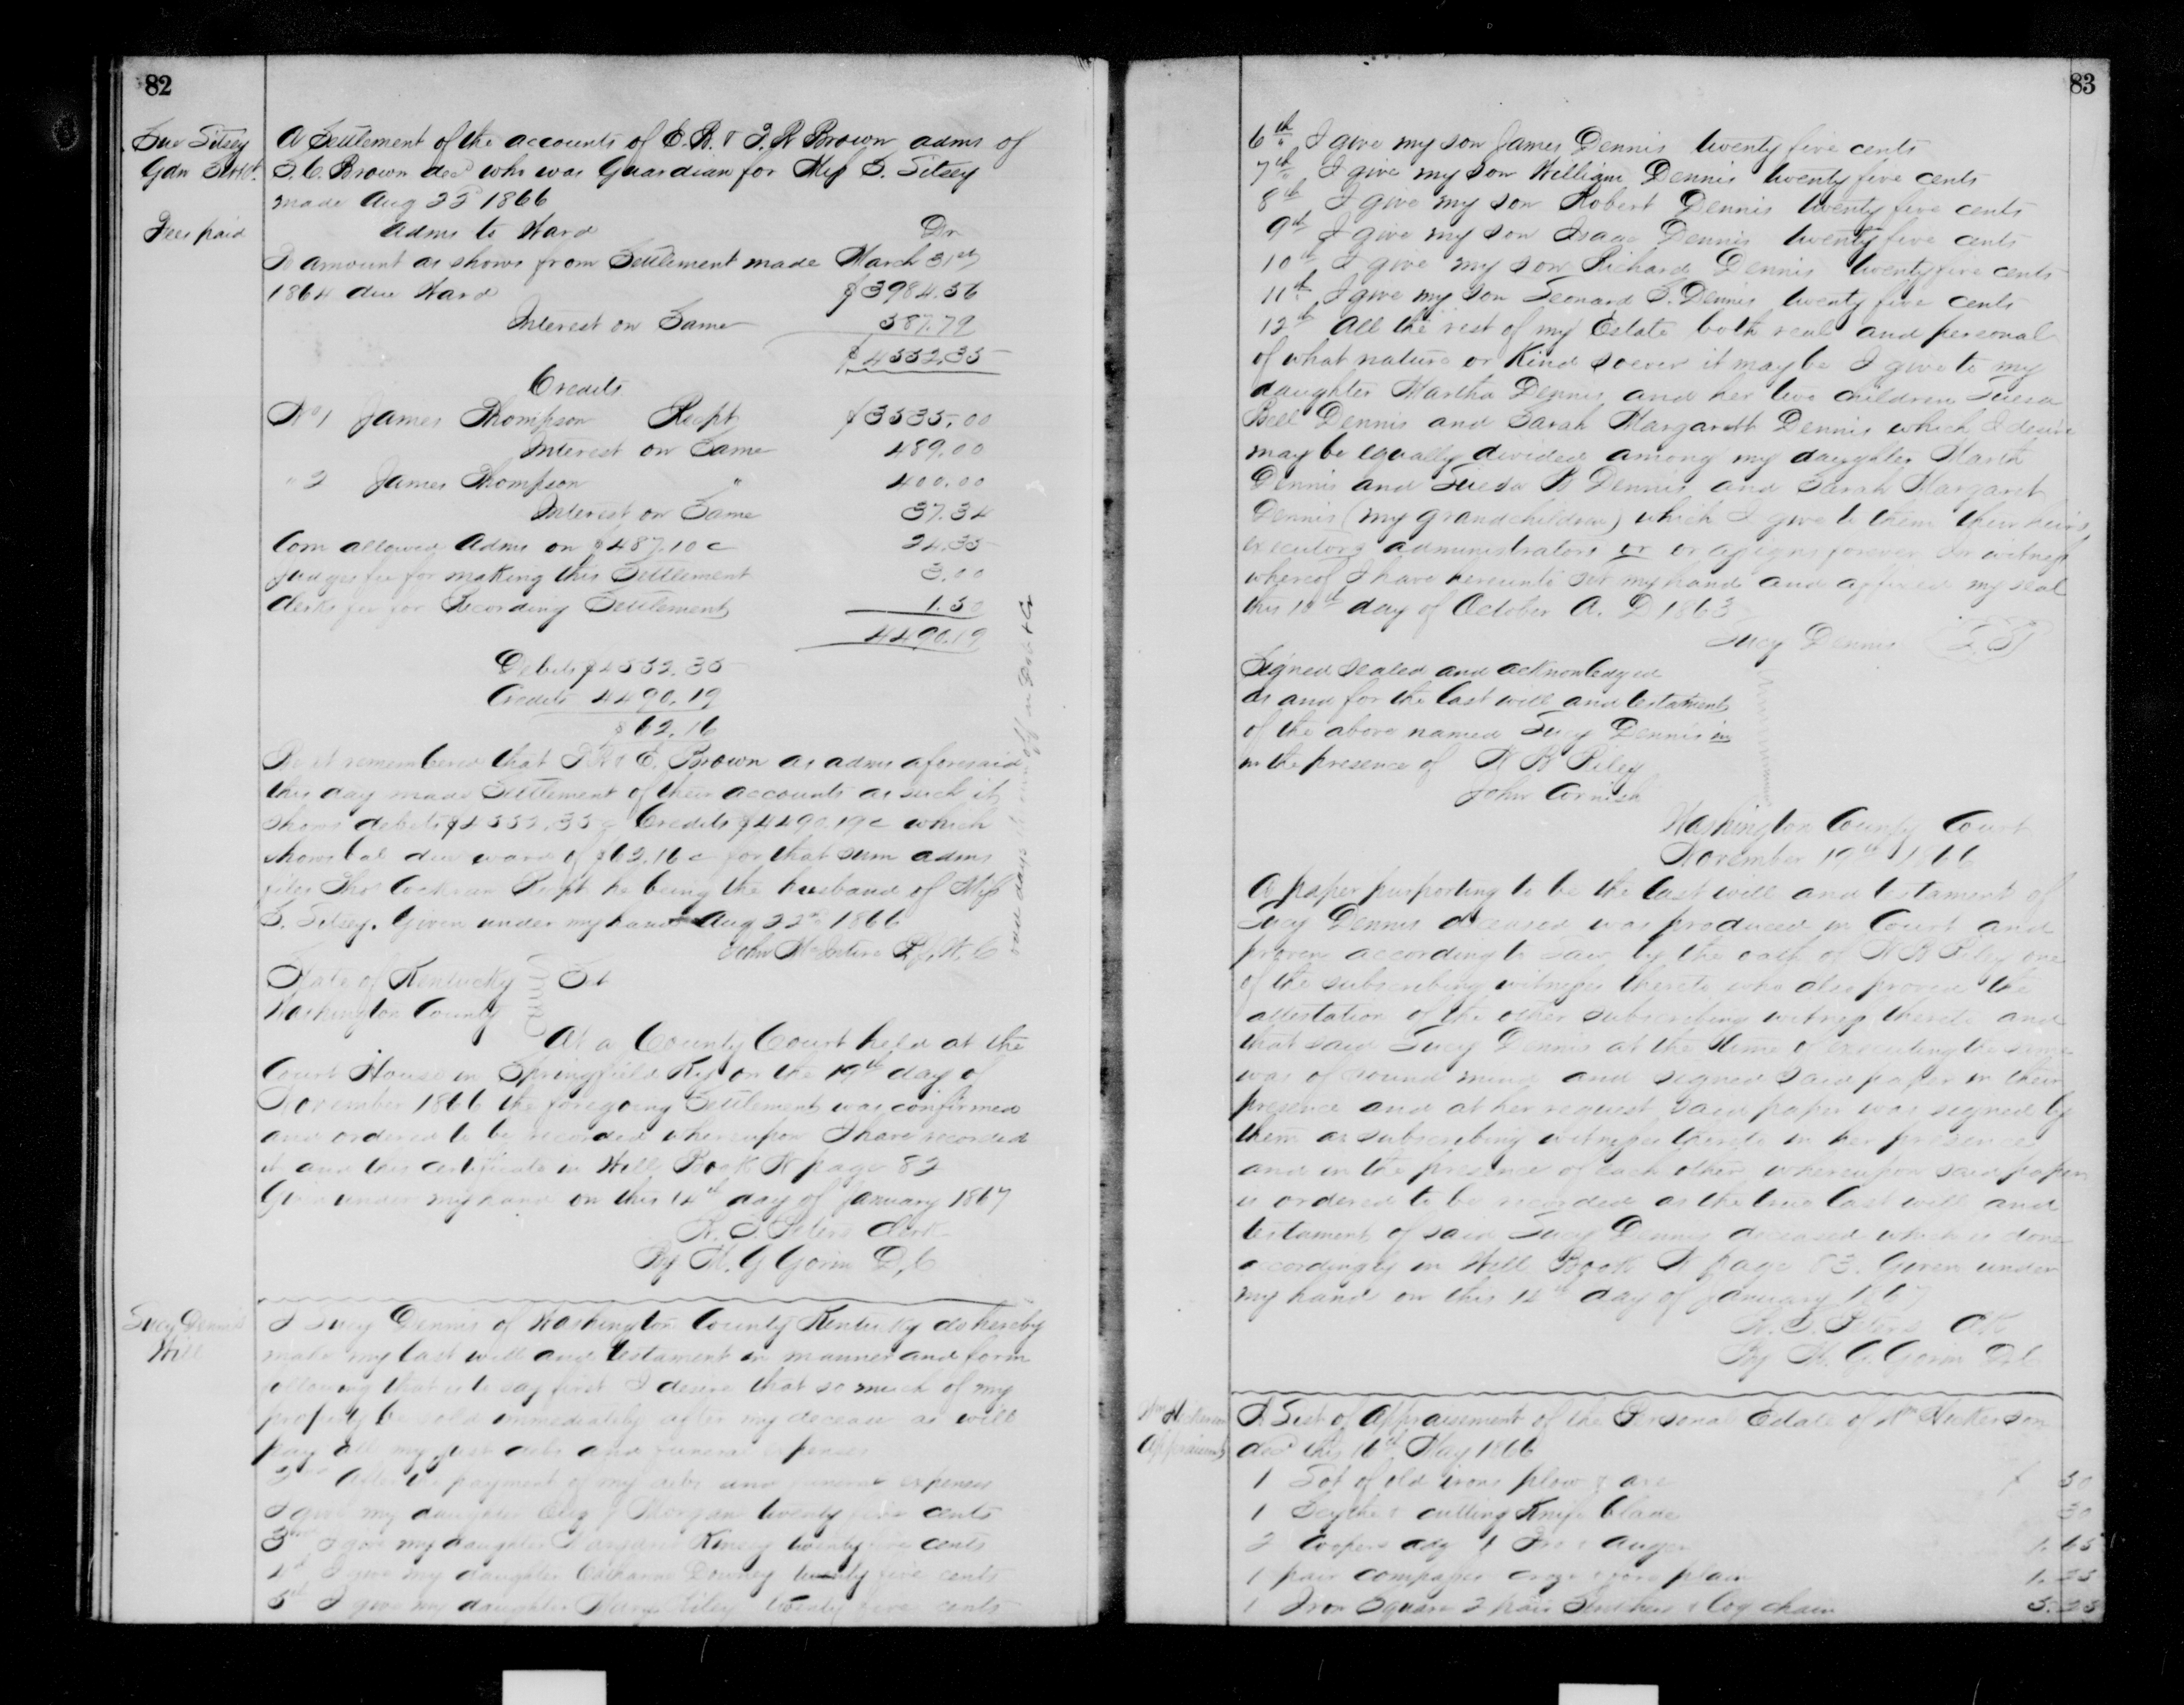 82
Sue Litsey
Gdn Settlt.
Fees paid
A Settlement of the accounts of E. B. & J. R Brown adms of
S. C. Brown decd who was Guardian for Miss S. Litsey
made Aug 22d 1866
Adms to Ward Dr
To amount as shows from Settlement made March 31st
1864 due Ward $3984.56
Interest on Same 587.79
$4552.35
Credits
No 1 James Thompson Recpt $3535.00
Interest on Same 489.00
" 2 James Thompson " 400.00
Interest on Same 37.34
Com allowed Adms on $487.10 c 24.35
Judges fee for making this Settlement 3.00
Clerks fee for Recording Settlement 1.50
4490.19
Debits $4552.35
Credits 4490.19
$62.16
Be it remembered that J R & E. Brown as adms aforesaid
this day made Settlement of their accounts as such it
shows debits $4552.35 c Credits $4490.19 c which
shows bal due ward of $62.16 c for that sum adms
files Thos Cochran Recpt he being the husband of Miss
S. Litsey. Given under my hand Aug 22nd 1866
John McIntire P. J. W. C
odd days thrown off on Deb & Cr
State of Kentucky Sct
Washington County
At a County Court held at the
Court House in Springfield Ky on the 19th day of
November 1866 the foregoing Settlement was confirmed
and ordered to be recorded whereupon I have recorded
it and this certificate in Will Book N page 82
Given under my hand on this 14th day of January 1867
Peters Clerk
By M. G Gorin D, C
Lucy Dennis
Will
I Lucy Dennis of Washington County Kentucky do hereby
make my last will and testament in manner and form
following that is to say first I desire that so much of my
property be sold immediately after my decease as will
pay all my just debts and funeral expenses
2nd After the payment of my debts and funeral expenses
I give my daughter Eliz J Morgan twenty five cents
3rd I give my daughter Margaret Kinsey twenty five cents
4th I give my daughter Catharine Downey twenty five cents
5th I give my daughter Mary Riley twenty five cents
83
6th I give my son James Dennis twenty five cents
7th I give my son William Dennis twenty five cents
8th I give my son Robert Dennis twenty five cents
9th I give my son Isaac Dennis twenty five cents
10th I give my son Richard Dennis twenty five cents
11th I give my son Leonard S. Dennis twenty five cents
12th All the rest of my Estate both real and personal
of what nature or kind soever it may be I give to my
daughter Martha Dennis and her two children Luesa
Bell Dennis and Sarah Margarett Dennis which I desire
may be equally divided among my daughter Marth
Dennis and Luesa B Dennis and Sarah Margaret
Dennis (my grandchildren) which I give to them their heirs
executors administrators or or assigns forever In witness
whereof I have hereunto set my hand and affixed my seal
this 10th day of October A. D. 1863
Lucy Dennis (L S)
Signed sealed and acknowledged
as and for the last will and testament
of the above named Lucy Dennis in
in the presence of W B Riley
John Cornish
Washington County Court
November 19th 1866
A paper purporting to be the last will and testament of
Lucy Dennis deceased was produced in Court and
proven according to Law by the oath of W B Riley one
of the subscribing witnesses thereto who also proved the
attestation of the other subscribing witness thereto and
that said Lucy Dennis at the time of executing the same
was of sound mind and signed said paper in their
presence and at her request said paper was signed by
them as subscribing witnesses thereto in her presence
and in the presence of each other whereupon said paper
is ordered to be recorded as the true last will and
testament of said Lucy Dennis deceased which is done
accordingly in Will Book N page 83. Given under
my hand on this 14th day of January 1867
Peters Clk
By M. G. Gorin D. C
Wm Hickerson
Appraisment
A List of Appraisement of the Personal Estate of Wm Hickerson
decd this 16th May 1866
1 Lot of old irons plow & axe $ 50
1 Scythe & cutting Knife blade 50
2 Coopers adz 1 Fro & auger 1.65
1 pair compasses croze & jore plain 1.25
1 Iron Square 2 pair Stretchers & log chain 3.25